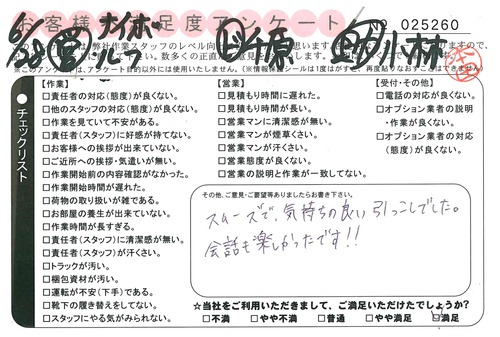 お客様 足度アンケート
№ 025260
【作業】
□責任者の対応(態度)が良くない。
□他のスタッフの対応(態度)が良くない。
□作業を見ていて不安がある。
□責任者(スタッフ)に好感が持てない。
□お客様への挨拶が出来ていない。
□ご近所への挨拶・気遣いが無い。
□作業開始前の内容確認がなかった。
□作業開始時間が遅れた。
□荷物の取り扱いが雑である。
□お部屋の養生が出来ていない。
□作業時間が長すぎる。
□責任者(スタッフ)に清潔感が無い。
□責任者(スタッフ)が汗くさい。
□トラックが汚い。
□梱包資材が汚い。
□運転が不安(下手)である。
□靴下の履き替えをしてない。
□スタッフにやる気がみられない。
【営業】
□見積もり時間に遅れた。
□見積もり時間が長い。
□営業マンに清潔感が無い。
□営業マンが煙草くさい。
□営業マンが汗くさい。
□営業態度が良くない。
□営業の説明と作業が一致してない。
【受付・その他】
□電話の対応が良くない。
□オプション業者の説明
・作業が良くない。
□オプション業者の対応
(態度)が良くない。
チェックリスト
その他、ご意見・ご要望等ありましたらお書き下さい。
スムーズで、気持ちの良い引っこしでした。
会話も楽しかったです!!
☆当社をご利用いただきまして、ご満足いただけたでしょうか?
□不満 □やや不満 □普通 □やや満足 □満足